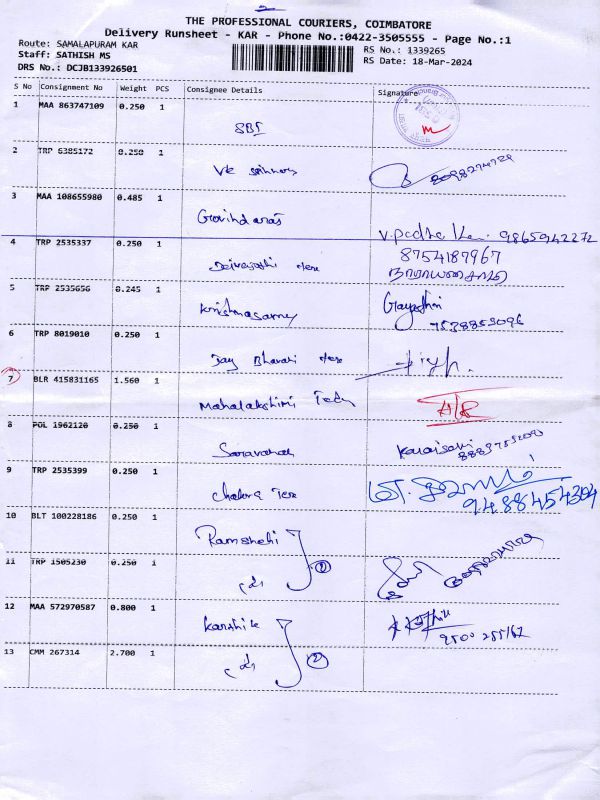 THE PROFESSIONAL COURIERS, COIMBATORE
Delivery Runsheet - KAR - Phone No.:0422-3505555 - Page No.:1
Route: SAMALAPURAM KAR
Staff: SATHISH MS
DRS No.: DCJB133926501
RS No.: 1339265
RS Date: 18-Mar-2024
S No Consignment No Weight PCS Consignee Details Signature
1 MAA 863747109 0.250 1
SBI
2 TRP 6385172 0.250 1
VK
3 MAA 108655980 0.485 1
Govindaraj
9865942272
4 TRP 2535337 0.250 1
8754187967
நாராயணசாமி
5 TRP 2535656 0.245 1
Krishnasamy
Gayathri
7538853096
6 TRP 8019010 0.250 1
Jay Bharati
7 BLR 415831165 1.560 1
Mahalakshimi Tedy
8 POL 1962120 0.250 1
Saravanan
Kalaiselvi
9 TRP 2535399 0.250 1
Chakra Tex
9488454304
10 BLT 100228186 0.250 1
11 TRP 1505230 0.250 1
2
12 MAA 572970587 0.800 1
Karthik
13 CMM 267314 2.700 1
2